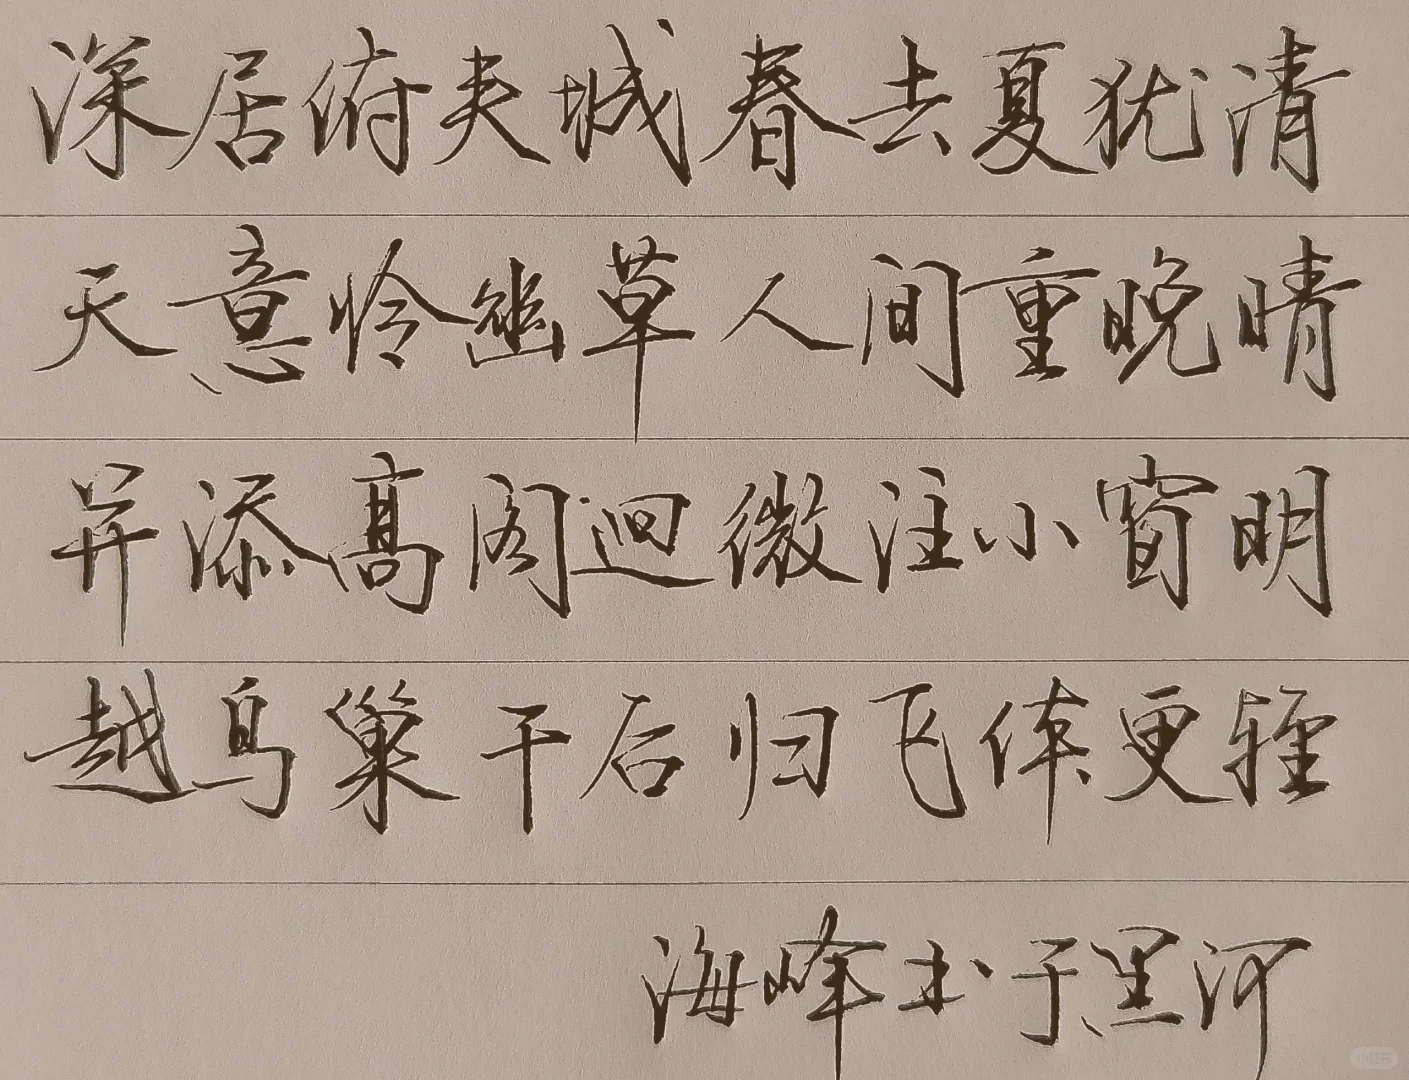 深居俯夹城春去夏犹清
天意怜幽草人间重晚晴
并添高阁迥微注小窗明
越鸟巢干后归飞体更轻
海峰书于黑河